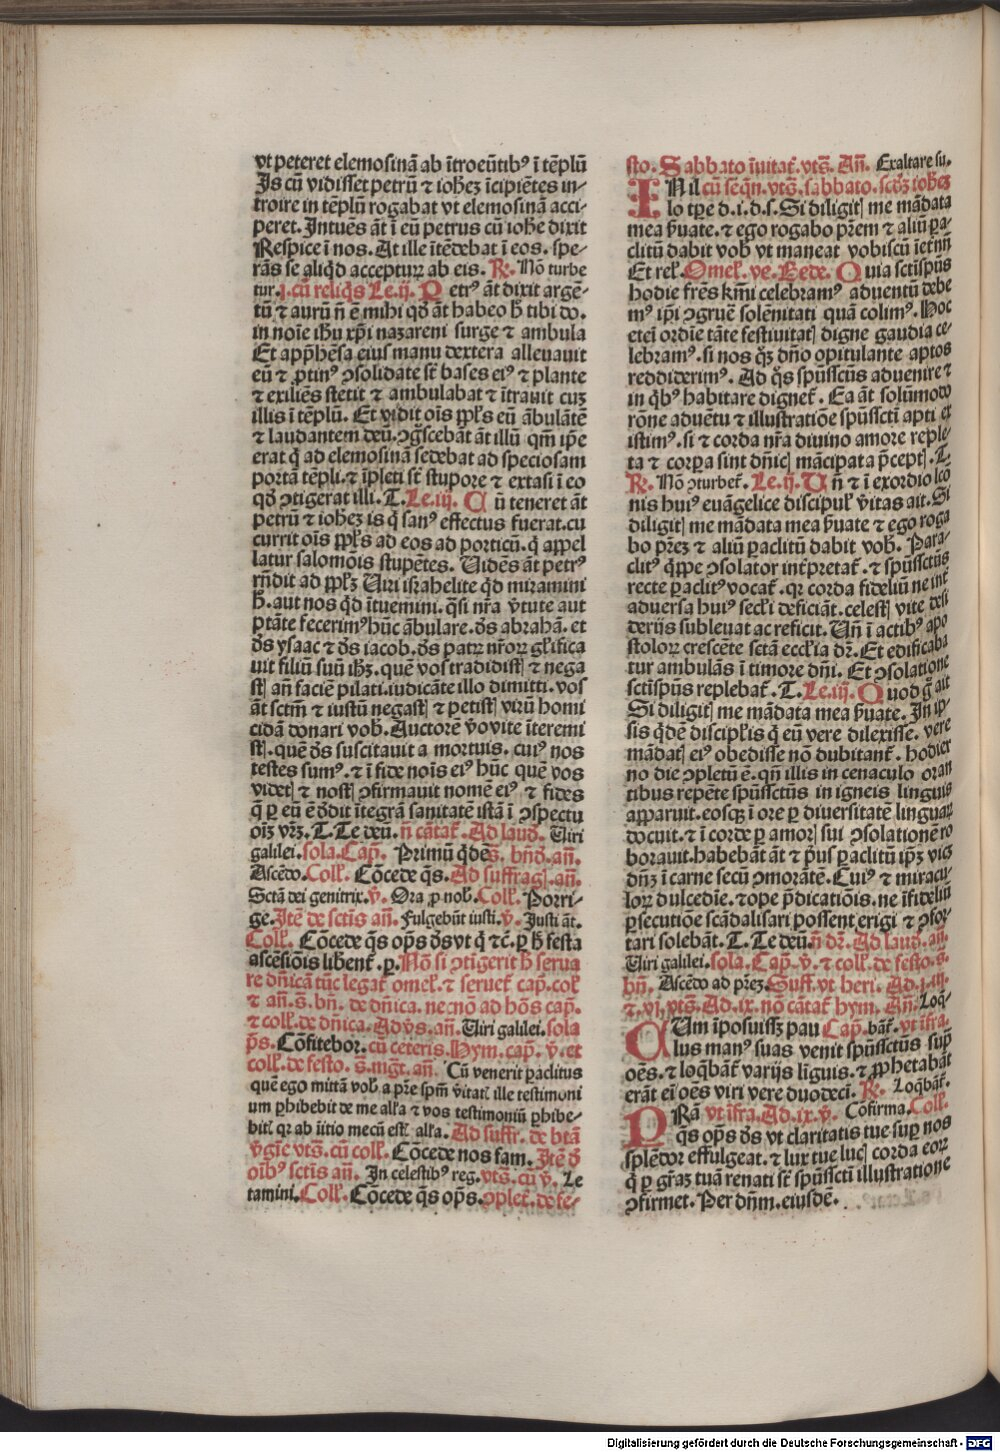 vt peteret elemosinā ab ītroeūtibꝰ ī tēplū
Is cū vidisset petrū ⁊ iohēz īcipiētes in-
troire in tēplū rogabat vt elemosinā acci-
peret. Intuēs āt ī eū petrus cū iohē dixit
Respice ī nos. At ille ītēdebat ī eos. spe-
rās se aliqd̄ accepturꝫ ab eis. R̄. Nō turbe
tur.j.cū reliq̄s Le.ij. P etrꝰ āt dixit argē-
tū ⁊ aurū n̄ ē mihi qd̄ āt habeo h̄ tibi do.
in noīe ihū xp̄i nazareni surge ⁊ ambula
Et app̄hēsa eius manu dextera alleuauit
eū ⁊ ꝓtinꝰ ꝯsolidate st̄ bases eiꝰ ⁊ plante
⁊ exiliēs stetit ⁊ ambulabat ⁊ ītrauit cuꝫ
illis ī tēplū. Et vidit oīs ppl̄s eū ābulātē
⁊ laudantem deū. ꝯgscebāt āt illū qm̄ ip̄e
erat q̄ ad elemosinā sedebat ad speciosam
portā tēpli. ⁊ īpleti st̄ stupore ⁊ extasi ī eo
qd̄ ꝯtigerat illi. T. Le.iij. C ū teneret āt
petrū ⁊ iohēz is q̄ sanꝰ effectus fuerat. cu
currit oīs ppl̄s ad eos ad porticū. q̄ appel
latur salomōis stupētes. Vidēs āt petrꝰ
rn̄dit ad ppl̄ꝫ Viri israhelite qd̄ miramini
h̄. aut nos qd̄ ītuemini. q̄si nr̄a v̄tute aut
ptāte fecerimꝰ hūc ābulare. ds̄ abrahā. et
ds̄ ysaac ⁊ ds̄ iacob. ds̄ patrꝫ nr̄orꝫ gl̄ifica
uit filiū suū ihꝫ. quē vos tradidistꝭ ⁊ nega
stꝭ an̄ faciē pilati. iudicāte illo dimitti. vos
āt sctm̄ ⁊ iustū negastꝭ ⁊ petistꝭ virū homi
cidā donari vob̄. Auctorē v̄o vite īteremi
stꝭ. quē ds̄ suscitauit a mortuis. cuiꝰ nos
testes sumꝰ. ⁊ ī fide noīs eiꝰ hūc quē vos
videtꝭ ⁊ nostꝭ ꝯfirmauit nomē eiꝰ ⁊ fides
q̄ ꝑ eū ē d̄dit ītegrā sanitatē istā ī ꝯspectu
oīꝫ vr̄ꝫ. T. Te deū. n̄ cātat̄. Ad laud̄. Viri
galilei. sola. Cap̄. Primū qdē s. bn̄d̄. an̄.
Ascēdo. Coll̄. Cōcede q̄s. Ad suffragꝭ. an̄.
Sctā dei genitrix. v̄. Ora ꝓ nob̄. Coll̄. Porri-
ge. Itē de sctīs an̄. Fulgebūt iusti. v̄. Iusti āt.
Coll̄. Cōcede q̄s op̄s ds̄ vt q̄ ⁊c̄. ꝑ h̄ festa
ascēsiōis libent̄. ꝑ. Nō si ꝯtigerit h̄ serua
re dn̄icā tūc legat̄ omel̄. ⁊ seruet̄ cap̄. col̄
⁊ an̄. s. bn̄. de dn̄ica. ne: nō ad hōs cap̄.
⁊ coll̄. de dn̄ica. Ad v̄s. an̄. Viri galilei. sola
p̄s. Cōfitebor. cū ceteris. Hym. cap̄. v̄. et
coll̄. de festo. s. mḡt. an̄. Cū venerit paclitus
quē ego mittā vob̄ a pr̄e spm̄ v̄itatꝭ ille testimoni
um phibebit de me all̄a ⁊ vos testimoniū phibe-
bitꝭ qꝛ ab īitio mecū estꝭ all̄a. Ad suffr̄. de btā
v̄gīe vts̄. cū coll̄. Cōcede nos fam. Itē d̄
oībꝰ sctīs an̄. In celestibꝰ reg. vts̄. cū v̄. Le
tamini. Coll̄. Cōcede q̄s op̄s. ꝯplet̄. de fe-
sto. Sabbato īuitat̄. vts̄. An̄. Exaltare su.
I Nil cū seqn̄. vts̄. sabbato. scdꝫ iohēz
lo tpe d. i. d. s. Si diligitꝭ me mādata
mea ẜuate. ⁊ ego rogabo pr̄em ⁊ aliū pa-
clitū dabit vob̄ vt maneat vobiscū īetn̄
Et rel̄. Omel̄. ve. Bede. Q uia sctīspūs
hodie frēs km̄i celebramꝰ aduentū debe
mꝰ ip̄i ꝯgruē solēnitati quā colimꝰ. Hoc
etei ordīe tāte festiuitatꝭ digne gaudia ce-
lebramꝰ. si nos qꝫ dn̄o opitulante aptos
reddiderimꝰ. Ad q̄s spūsscūs aduenire ⁊
in q̄bꝰ habitare dignet̄. Ea āt solūmodo
rōne aduētu ⁊ illustratiōe spūssctī apti ex
istimꝰ. si ⁊ corda nr̄a diuino amore reple-
ta ⁊ corpa sint dn̄icꝭ mācipata p̄ceptꝭ. T.
R̄. Nō ꝯturbet̄. Le.ij. V n̄ ⁊ ī exordio lco
nis huiꝰ euāgelice discipul̄ v̄itas ait. Si
diligitꝭ me mādata mea ẜuate ⁊ ego roga
bo pr̄eꝫ ⁊ aliū paclitū dabit vob̄. Para-
clitꝰ q̄ppe ꝯsolator int̄pretat̄. ⁊ spūssctūs
recte paclitꝰ vocat̄. qꝛ corda fideliū ne int̄
aduersa huiꝰ secl̄i deficiāt. celestꝭ vite desi
derijs subleuat ac reficit. Vn̄ ī actibꝰ apo
stolorꝫ crescēte sctā eccl̄ia dr̄. Et edificaba
tur ambulās ī timore dn̄i. Et ꝯsolatione
sctīspūs replebat̄. T. Le.iij. Q uod ḡ ait
Si diligitꝭ me mādata mea ẜuate. In ip-
sis qdē discipl̄is q̄ eū vere dilexisse. vere
mādatꝭ eiꝰ obedisse nō dubitant̄. hodier
no die ꝯpletū ē. qn̄ illis in cenaculo oran
tibus repēte spūssctūs in igneis linguis
apparuit. eosqꝫ ī ore ꝑ diuersitatē linguaꝝ
docuit. ⁊ ī corde ꝑ amorꝭ sui ꝯsolationē ro
borauit. habebāt āt ⁊ p̄us paclitū ip̄ꝫ vicꝫ
dn̄ꝫ ī carne secū ꝯmorātē. Cuiꝰ ⁊ miracu-
lorꝫ dulcedīe. ⁊ ope p̄dicatiōis. ne īfideliū
ꝑsecutiōe scādalisari possent erigi ⁊ ꝯfor-
tari solebāt. T. Te deū. n̄ dr̄. Ad laud̄. an̄.
Viri galilei. sola. Cap̄. v̄. ⁊ coll̄. de festo. s.
bn̄. Ascēdo ad pr̄ez. Suff. vt heri. Ad. j. iij.
⁊ vj. vts̄. Ad. ix. nō cātat̄ hym. An̄. Loq̄-
C Um īposuissꝫ pau Cap̄. bāt̄. vt īfra.
lus manꝰ suas venit spūssctūs sup̄
oēs. ⁊ loq̄bāt̄ varijs līguis. ⁊ ꝓphetabāt
erāt ei oēs viri vere duodeci. R̄. Loq̄bāt̄.
P Rā vt īfra. Ad. ix. v̄. Cōfirma. Coll̄.
q̄s op̄s ds̄ vt claritatis tue sup̄ nos
splēdor effulgeat. ⁊ lux tue lucꝭ corda eorꝫ
q̄ ꝑ gr̄aꝫ tuā renati st̄ spūssctī illustratione
ꝯfirmet. Per dn̄m. eiusdē.
Digitalisierung gefördert durch die Deutsche Forschungsgemeinschaft - DFG